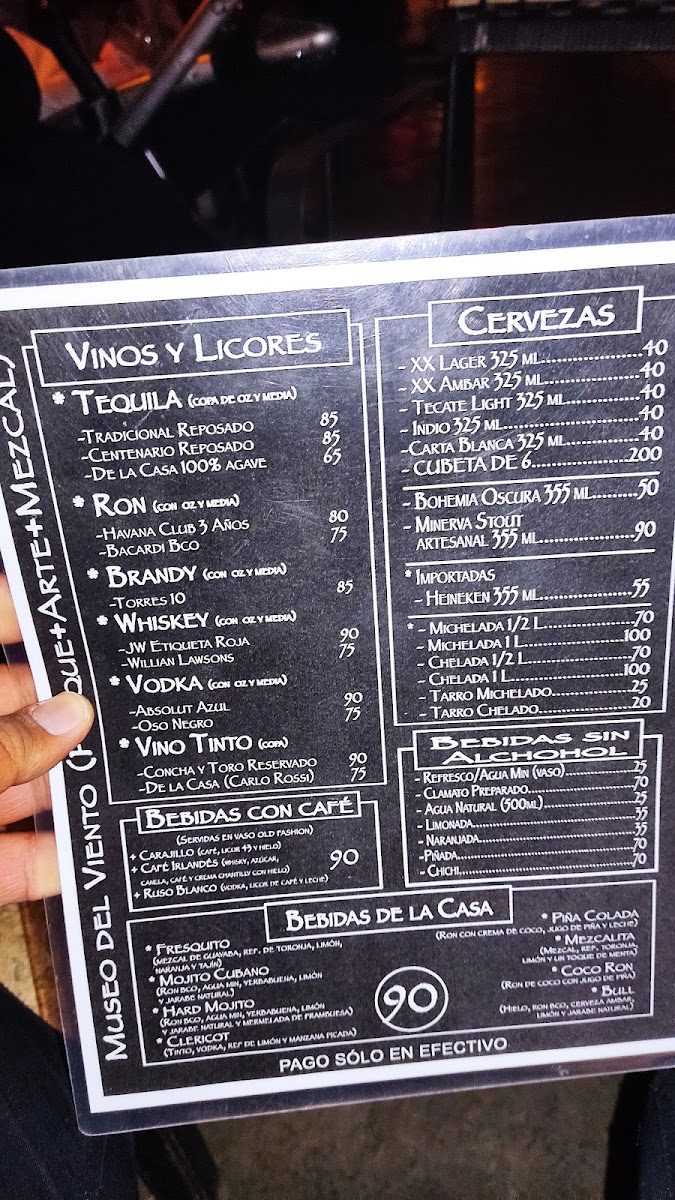 Museo del Viento (Pulque+Arte+Mezcal)
Vinos y Licores
* Tequila (copa de oz y media)
-Tradicional Reposado 85
-Centenario Reposado 85
-De la Casa 100% agave 65
* Ron (con oz y media)
-Havana Club 3 Años 80
-Bacardi Bco 75
* Brandy (con oz y media)
-Torres 10 85
* Whiskey (con oz y media)
-JW Etiqueta Roja 90
-Willian Lawsons 75
* Vodka (con oz y media)
-Absolut Azul 90
-Oso Negro 75
* Vino Tinto (copa)
-Concha y Toro Reservado 90
-De la Casa (Carlo Rossi) 75
Bebidas con café
(Servidas en vaso old fashion)
+ Carajillo (café, licor 43 y hielo)
+ Café Irlandés (whisky, azúcar,
canela, café y crema chantilly con hielo)
+ Ruso Blanco (vodka, licor de café y leche)
90
Cervezas
- XX Lager 325 ml 40
- XX Ambar 325 ml 40
- Tecate Light 325 ml 40
- Indio 325 ml 40
-Carta Blanca 325 ml 40
- CUBETA DE 6 200
- Bohemia Oscura 355 ml 50
- Minerva Stout
artesanal 355 ml 90
* Importadas
- Heineken 355 ml 55
* - Michelada 1/2 l 70
- Michelada 1 l 100
- Chelada 1/2 l 70
- Chelada 1 l 100
- Tarro Michelado 25
- Tarro Chelado 20
Bebidas sin
Alchohol
- Refresco/Agua Min (vaso) 25
- Clamato Preparado 70
- Agua Natural (500ml) 25
- Limonada 35
- Naranjada 35
-Piñada 70
- Chichi 70
Bebidas de la Casa
* Fresquito
(mezcal de guayaba, ref. de toronja, limón,
naranja y tajín)
* Mojito Cubano
(Ron bco, agua min, yerbabuena, limón
y jarabe natural)
* Hard Mojito
(Ron bco, agua min, yerbabuena, limón
y jarabe natural y mermelada de frambuesa)
* Clericot
(Tinto, vodka, ref de limón y manzana picada)
90
* Piña Colada
(Ron con crema de coco, jugo de piña y leche)
* Mezcalita
(Mezcal, ref. toronja,
limón y un toque de menta)
* Coco Ron
(Ron de coco con jugo de piña)
* Bull
(Hielo, ron bco, cerveza ambar,
limón y jarabe natural)
PAGO SÓLO EN EFECTIVO